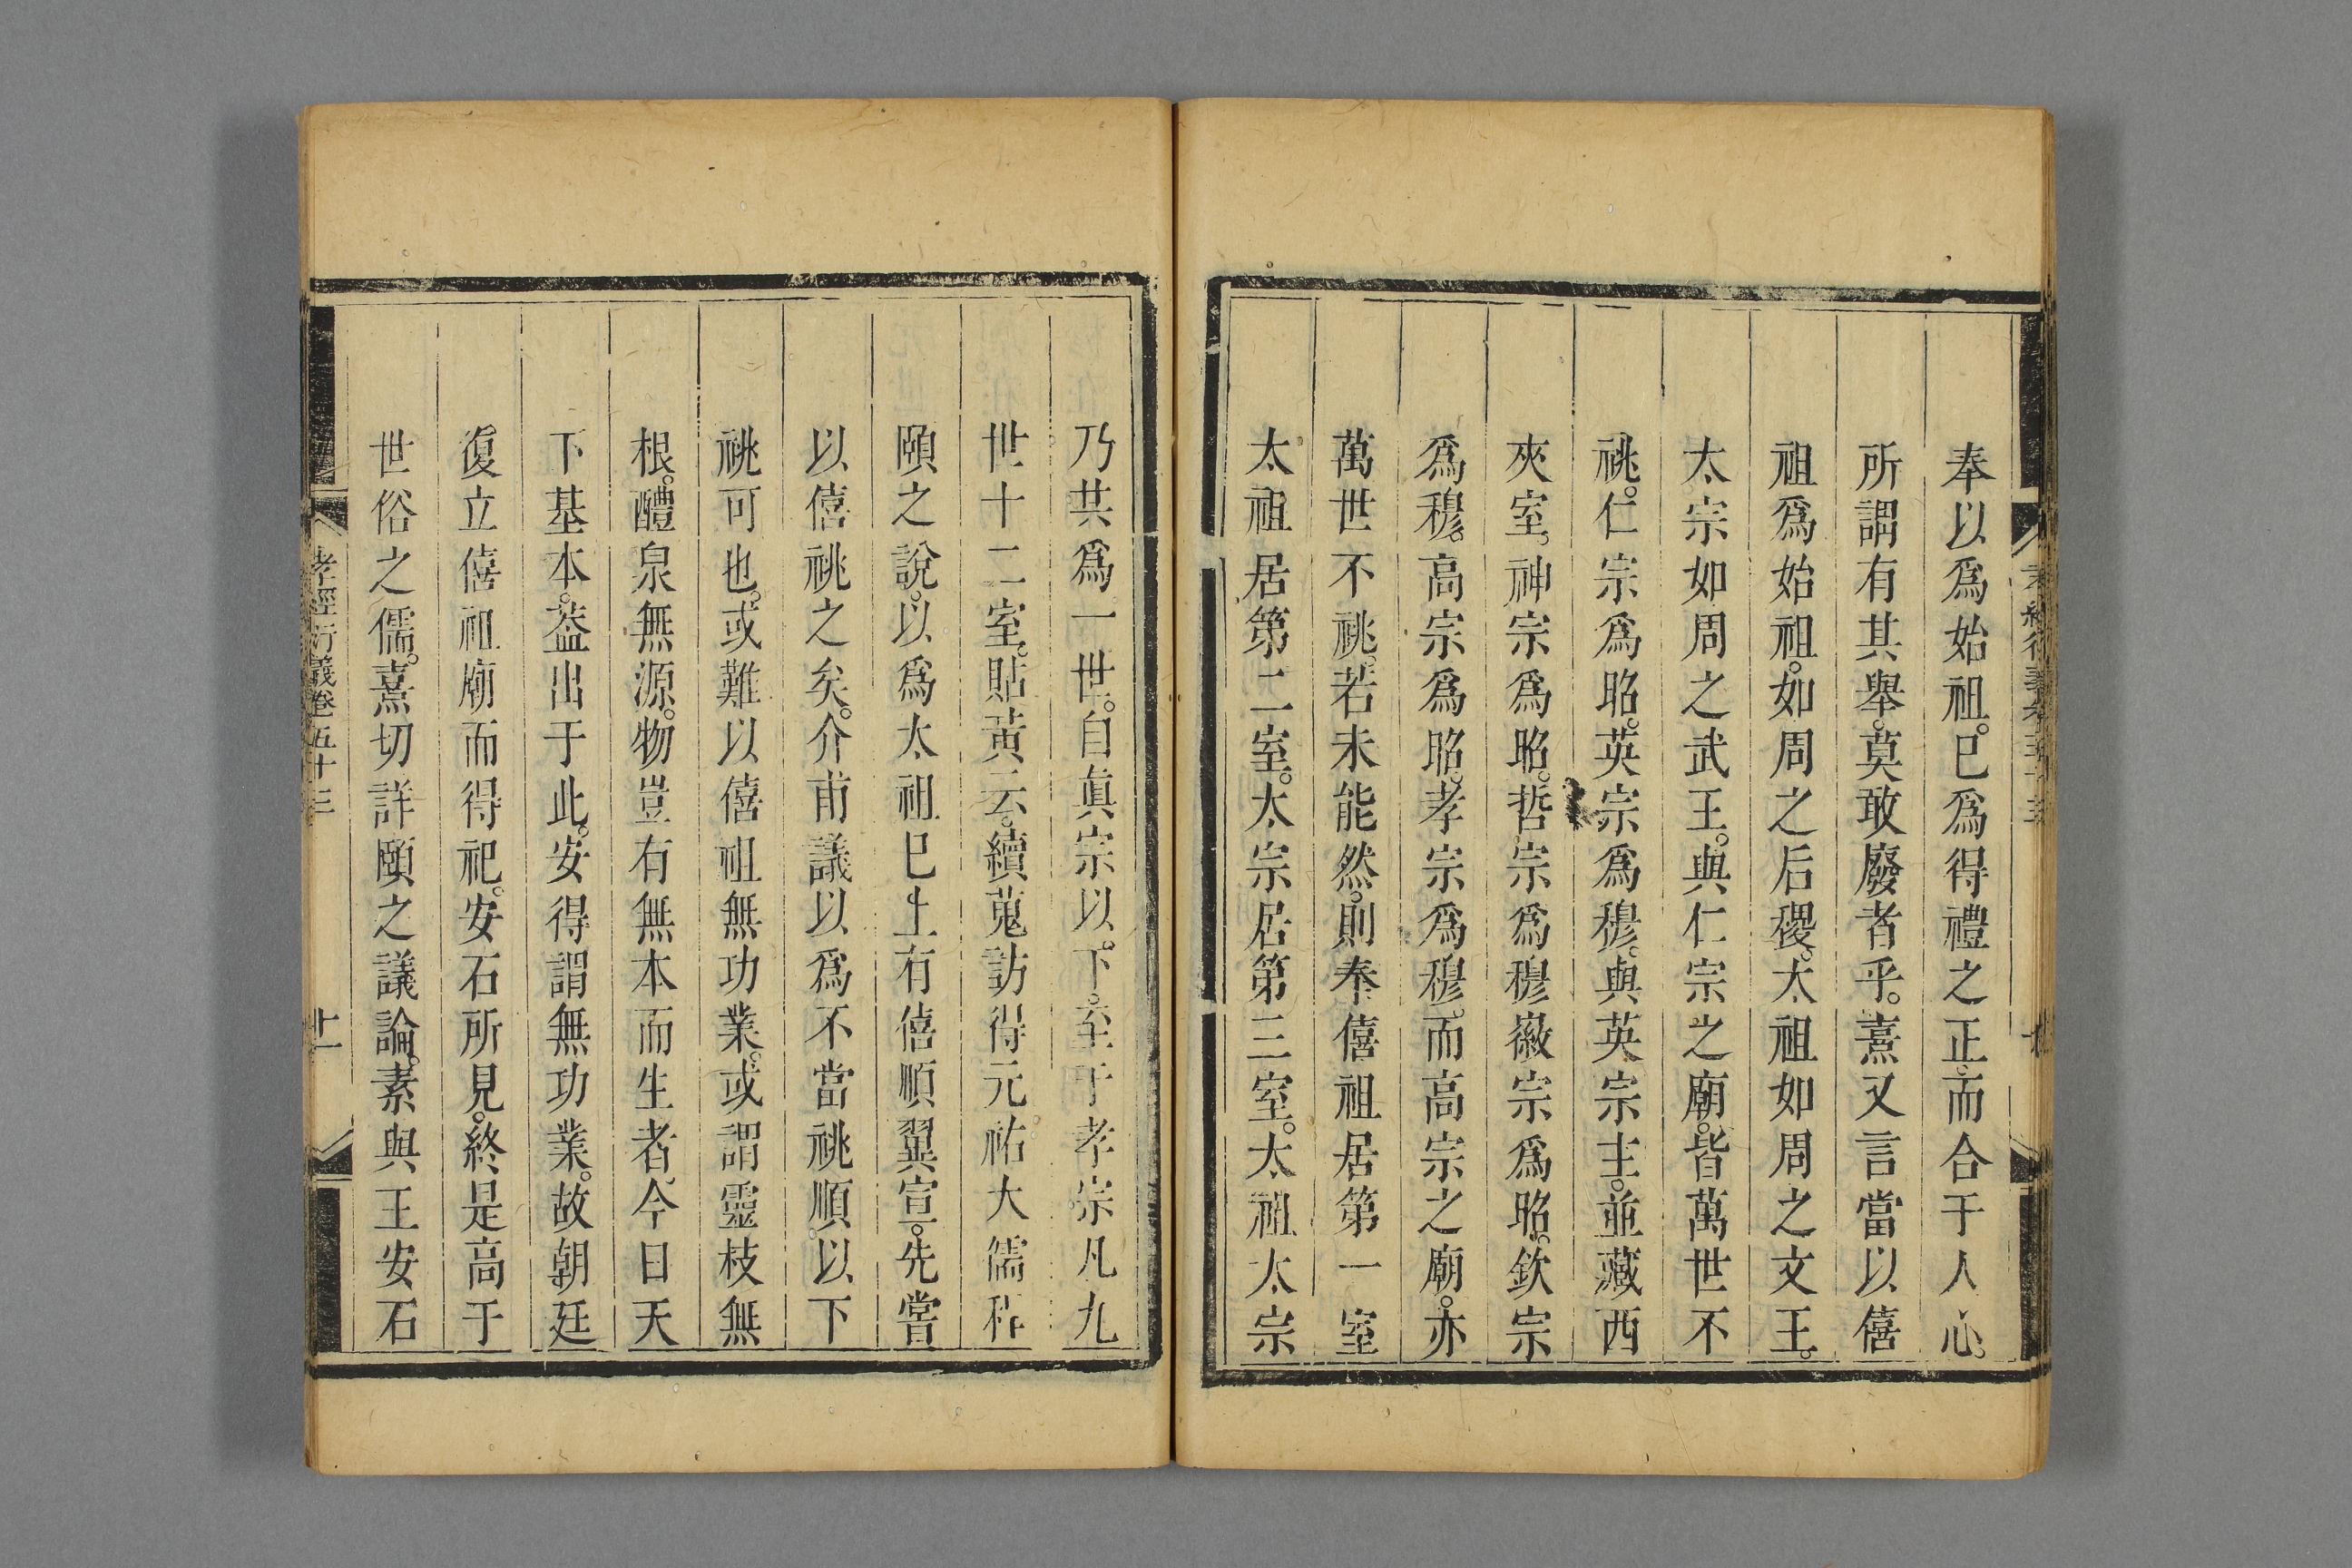 奉以爲始祖。已爲得禮之正。而合于人心。
所謂有其舉。莫敢廢者乎。熹又言當以僖
祖爲始祖。如周之后稷。太祖如周之文王。
太宗如周之武王。與仁宗之廟。皆萬世不
祧。仁宗爲昭。英宗爲穆。與英宗主。並藏西
夾室。神宗爲昭。哲宗爲穆。徽宗爲昭。欽宗
爲穆。高宗爲昭。孝宗爲穆。而高宗之廟。亦
萬世不祧。若未能然。則奉僖祖居第一室
太祖居第二室。太宗居第三室。太祖太宗
乃共爲一世。自眞宗以。下。至于孝宗凡九
世十二室。貼黃云。續蒐訪得元祐大儒程
頤之說。以爲太祖已上有僖順翼宣。先嘗
以僖祧之矣。介甫議以爲不當祧順。以下
祧可也。或難以僖祖無功業。或謂靈枝無
根。醴泉無源。物豈有無本而生者。今日天
下基本。葢出于此。安得謂無功業。故朝廷
復立僖祖廟而得祀。安石所見。終是高于
世俗之儒。熹切詳頤之議論。素與王安石
孝經衍義卷五十三
十一